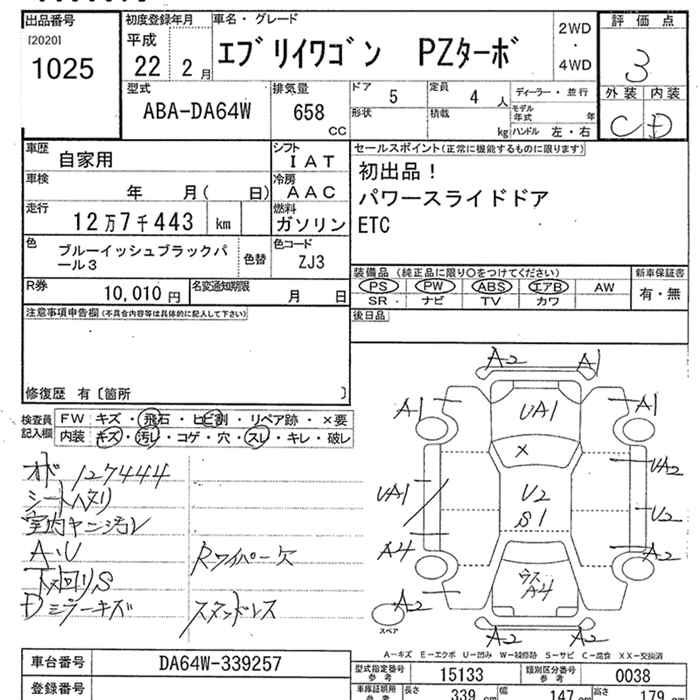 出品番号
[2020]
1025
初度登録年月
平成
22 2月
車名・グレード
エブリイワゴン PZターボ
2WD
・
4WD
評価点
3
外装 内装
C D
型式
ABA-DA64W
排気量
658
CC
ドア
5
定員
4 人
ディーラー・並行
形状
積載
kg
モデル年式 年
ハンドル 左・右
車歴
自家用
シフト
IAT
車検
年 月( 日)
冷房
AAC
走行
12万7千443 km
燃料
ガソリン
色
ブルーイッシュブラックパール3
色替
色コード
ZJ3
R券
10,010 円
名変通知期限
月 日
セールスポイント(正常に機能するものに限ります)
初出品!
パワースライドドア
ETC
装備品 (純正品に限り○をつけてください)
PS PW ABS エアB AW
SR ナビ TV カワ
新車保証書
有・無
後日品
注意事項申告欄(不具合内容等は具体的に記入して下さい)
修復歴 有〔箇所 〕
検査員記入欄
FW キズ・飛石・ヒビ割・リペア跡・×要
内装 キズ・汚レ・コゲ・穴・スレ・キレ・破レ
127444
シートヘタリ
室内ヤニ汚レ
A・U
下回りS
Dミラーキズ
Rワイパー欠
スタッドレス
A2 A1
A1 UA1 A1
×
UA1 U2 UA2
S1 U2
A4 A2
ウス
A4
A2
スペア
A2 A2
A-キズ E-エクボ U-凹み W-補修跡 S-サビ C-腐食 XX-交換済
車台番号
DA64W-339257
登録番号
型式指定番号
参考
15133
類別区分番号
参考
0038
車庫証明用
参考
長さ 339 cm
幅 147 cm
高さ 179 cm